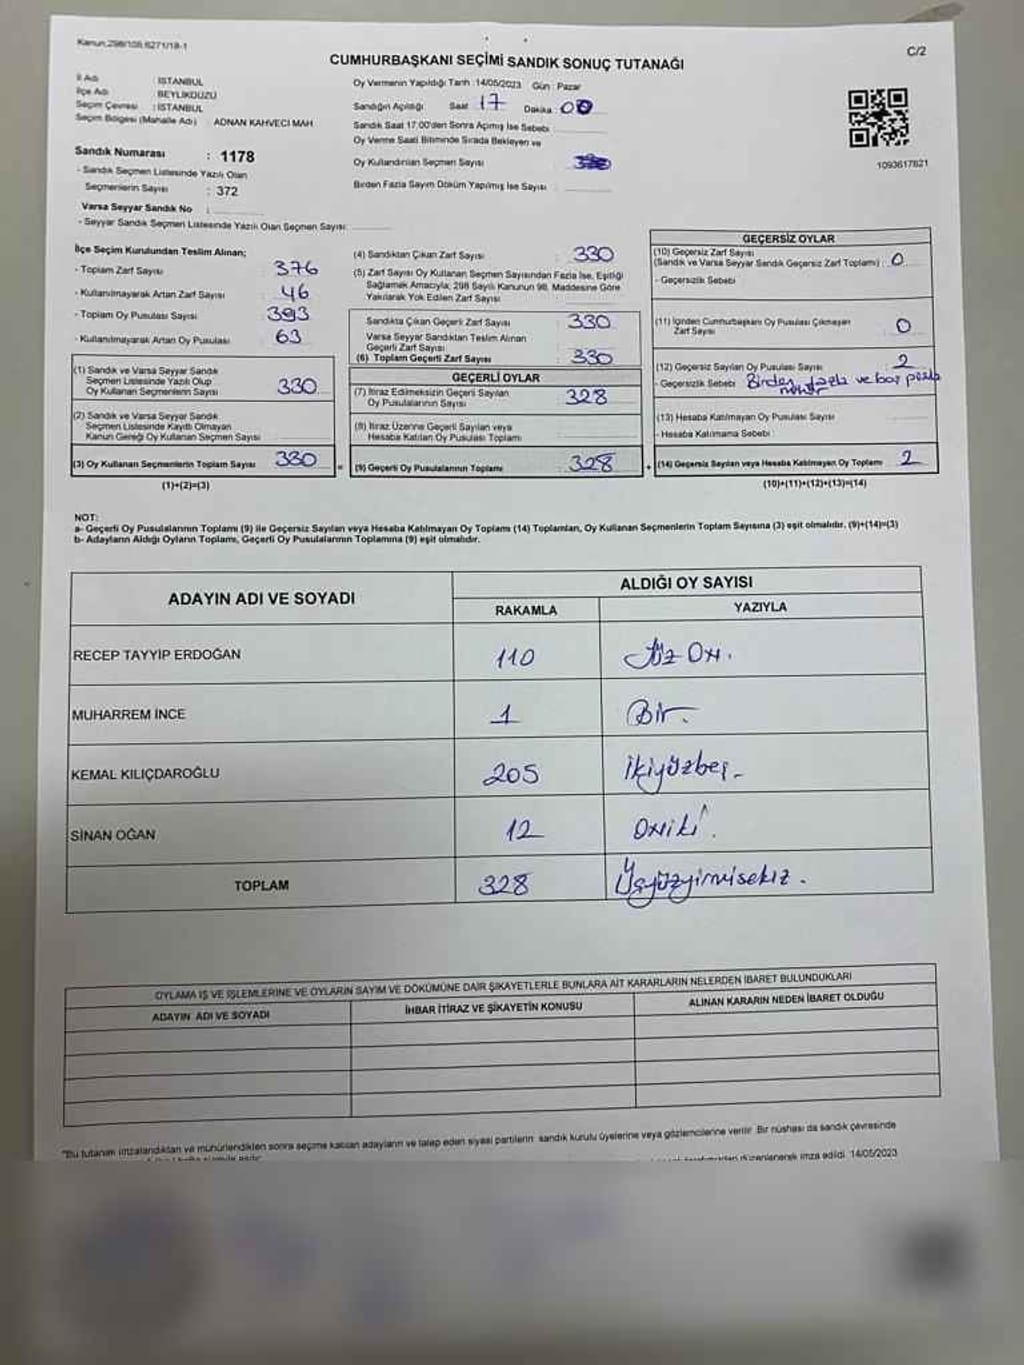 Kanun:298/108,6271/18-1
C/2
CUMHURBAŞKANI SEÇİMİ SANDIK SONUÇ TUTANAĞI
İl Adı : İSTANBUL
İlçe Adı : BEYLİKDÜZÜ
Seçim Çevresi : İSTANBUL
Seçim Bölgesi (Mahalle Adı) ADNAN KAHVECİ MAH
Sandık Numarası : 1178
- Sandık Seçmen Listesinde Yazılı Olan
Seçmenlerin Sayısı : 372
Varsa Seyyar Sandık No :
- Seyyar Sandık Seçmen Listesinde Yazılı Olan Seçmen Sayısı:
Oy Vermenin Yapıldığı Tarih :14/05/2023 Gün : Pazar
Sandığın Açıldığı Saat 17 Dakika : 00
Sandık Saat 17:00'den Sonra Açılmış İse Sebebi
Oy Verme Saati Bitiminde Sırada Bekleyen ve
Oy Kullandırılan Seçmen Sayısı
Birden Fazla Sayım Döküm Yapılmış İse Sayısı
1093617621
İlçe Seçim Kurulundan Teslim Alınan;
- Toplam Zarf Sayısı : 376
- Kullanılmayarak Artan Zarf Sayısı : 46
- Toplam Oy Pusulası Sayısı : 393
- Kullanılmayarak Artan Oy Pusulası : 63
(1) Sandık ve Varsa Seyyar Sandık
Seçmen Listesinde Yazılı Olup
Oy Kullanan Seçmenlerin Sayısı 330
(2) Sandık ve Varsa Seyyar Sandık
Seçmen Listesinde Kayıtlı Olmayan
Kanun Gereği Oy Kullanan Seçmen Sayısı
(3) Oy Kullanan Seçmenlerin Toplam Sayısı 330
(1)+(2)=(3)
(4) Sandıktan Çıkan Zarf Sayısı 330
(5) Zarf Sayısı Oy Kullanan Seçmen Sayısından Fazla İse, Eşitliği
Sağlamak Amacıyla; 298 Sayılı Kanunun 98. Maddesine Göre
Yakılarak Yok Edilen Zarf Sayısı
Sandıkta Çıkan Geçerli Zarf Sayısı 330
Varsa Seyyar Sandıktan Teslim Alınan
Geçerli Zarf Sayısı
(6) Toplam Geçerli Zarf Sayısı 330
GEÇERLİ OYLAR
(7) İtiraz Edilmeksizin Geçerli Sayılan
Oy Pusulalarının Sayısı 328
(8) İtiraz Üzerine Geçerli Sayılan veya
Hesaba Katılan Oy Pusulası Toplamı
= (9) Geçerli Oy Pusulalarının Toplamı 328
GEÇERSİZ OYLAR
(10) Geçersiz Zarf Sayısı
(Sandık ve Varsa Seyyar Sandık Geçersiz Zarf Toplamı) : 0
- Geçersizlik Sebebi
(11) İçinden Cumhurbaşkanı Oy Pusulası Çıkmayan
Zarf Sayısı 0
(12) Geçersiz Sayılan Oy Pusulası Sayısı 2
- Geçersizlik Sebebi Birden fazla ve boş pusula
(13) Hesaba Katılmayan Oy Pusulası Sayısı
- Hesaba Katılmama Sebebi
+ (14) Geçersiz Sayılan veya Hesaba Katılmayan Oy Toplamı 2
(10)+(11)+(12)+(13)=(14)
NOT:
a- Geçerli Oy Pusulalarının Toplamı (9) ile Geçersiz Sayılan veya Hesaba Katılmayan Oy Toplamı (14) Toplamları, Oy Kullanan Seçmenlerin Toplam Sayısına (3) eşit olmalıdır. (9)+(14)=(3)
b- Adayların Aldığı Oyların Toplamı, Geçerli Oy Pusulalarının Toplamına (9) eşit olmalıdır.
ADAYIN ADI VE SOYADI ALDIĞI OY SAYISI
RAKAMLA YAZIYLA
RECEP TAYYİP ERDOĞAN 110 Yüz On.
MUHARREM İNCE 1 Bir.
KEMAL KILIÇDAROĞLU 205 ikiyüzbeş-
SİNAN OĞAN 12 oniki.
TOPLAM 328 Üçyüzyirmisekiz.
OYLAMA İŞ VE İŞLEMLERİNE VE OYLARIN SAYIM VE DÖKÜMÜNE DAİR ŞİKAYETLERLE BUNLARA AİT KARARLARIN NELERDEN İBARET BULUNDUKLARI
ADAYIN ADI VE SOYADI İHBAR İTİRAZ VE ŞİKAYETİN KONUSU ALINAN KARARIN NEDEN İBARET OLDUĞU
"Bu tutanak imzalandıktan ve mühürlendikten sonra seçime katılan adayların ve talep eden siyasi partilerin sandık kurulu üyelerine veya gözlemcilerine verilir. Bir nüshası da sandık çevresinde
düzenlenerek imza edildi. 14/05/2023